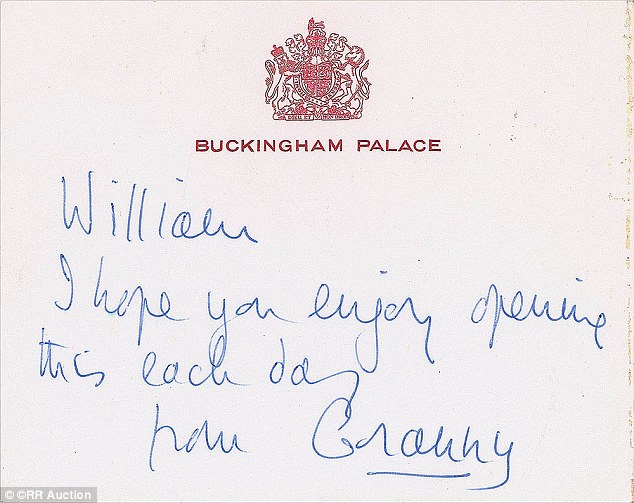 BUCKINGHAM PALACE
William
I hope you enjoy opening
this each day
from Granny
© RR Auction